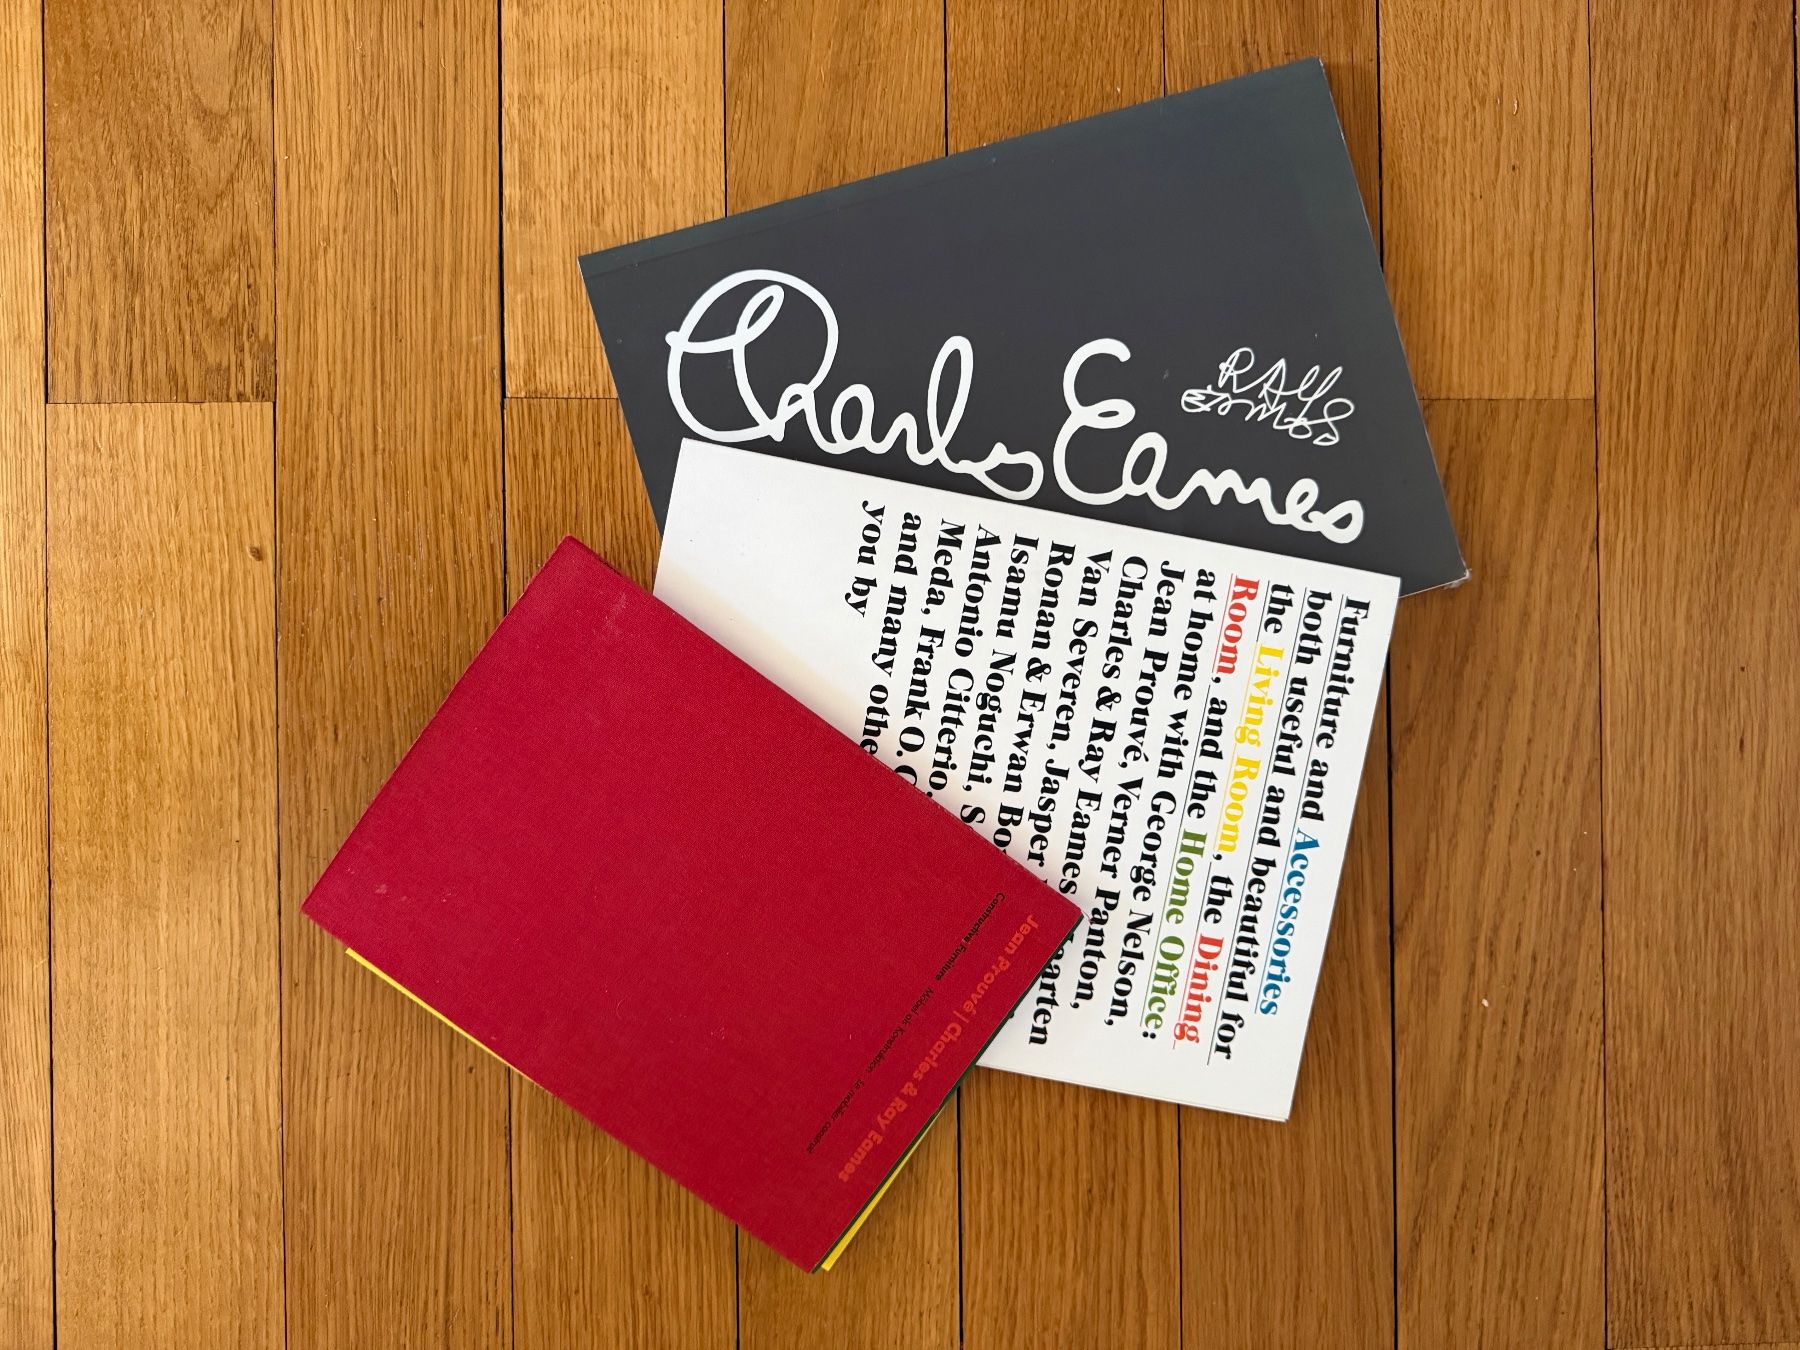 Charles Eames
RAY
EAMES
Furniture and Accessories
both useful and beautiful for
the Living Room, the Dining
Room, and the Home Office:
at home with George Nelson,
Jean Prouvé, Verner Panton,
Charles & Ray Eames
Van Severen, Jasper
Ronan & Erwan
Isamu Noguchi,
Antonio Citterio,
Meda, Frank O.
and many
you by
Jean Prouvé | Charles & Ray Eames
Constructive Furniture Möbel als Konstruktion Le mobilier construit